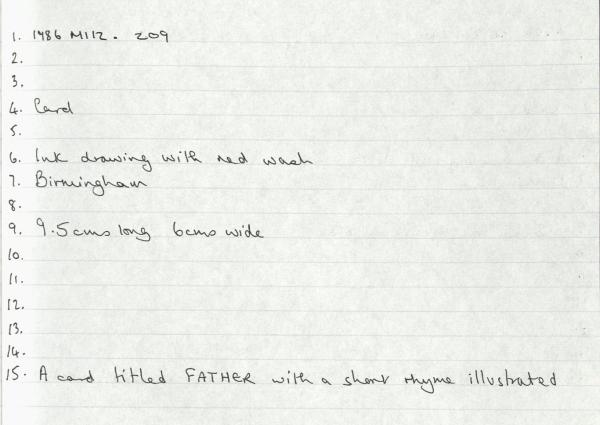 1. 1986 M112. 209
2.
3.
4. Card
5.
6. Ink drawing with red wash
7. Birmingham
8.
9. 9.5cms long 6cms wide
10.
11.
12.
13.
14.
15. A card titled FATHER with a short rhyme illustrated